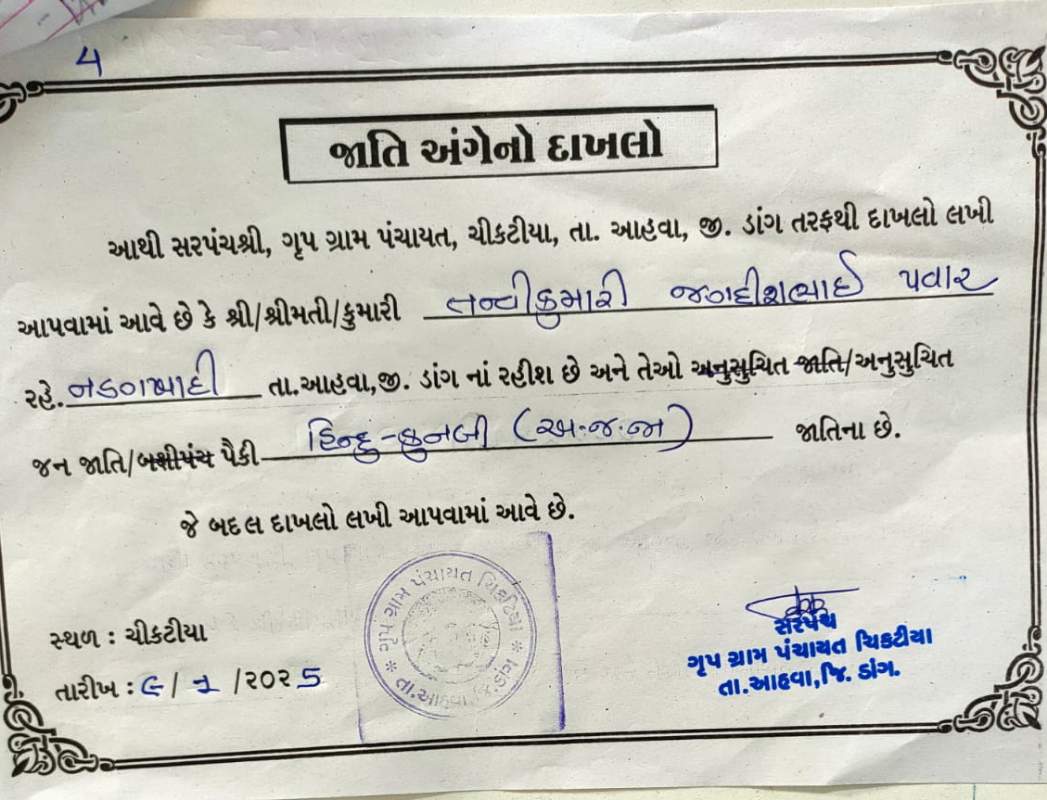 4
જાતિ અંગેનો દાખલો
આથી સરપંચશ્રી, ગૃપ ગ્રામ પંચાયત, ચીકટીયા, તા. આહવા, જી. ડાંગ તરફથી દાખલો લખી
આપવામાં આવે છે કે શ્રી/શ્રીમતી/કુમારી તન્વીકુમારી જગદીશભાઈ પવાર
રહે. નડગખાદી તા.આહવા,જી. ડાંગ નાં રહીશ છે અને તેઓ અનુસુચિત જાતિ/અનુસુચિત
જન જાતિ/બક્ષીપંચ પૈકી હિન્દુ-કુનબી (અ.જ.જા) જાતિના છે.
જે બદલ દાખલો લખી આપવામાં આવે છે.
ગૃપ ગ્રામ પંચાયત ચિકટીયા * તા.આહવા, જિ.ડાંગ *
સ્થળ : ચીકટીયા
તારીખ : ૯/ ૧ /૨૦૨5
સરપંચ
ગૃપ ગ્રામ પંચાયત ચિકટીયા
તા.આહવા,જિ. ડાંગ.